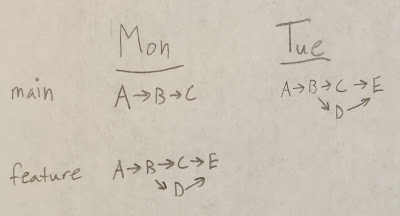 Mon Tue
main A→B→C A→B→C→E
↘D↗
feature A→B→C→E
↘D↗